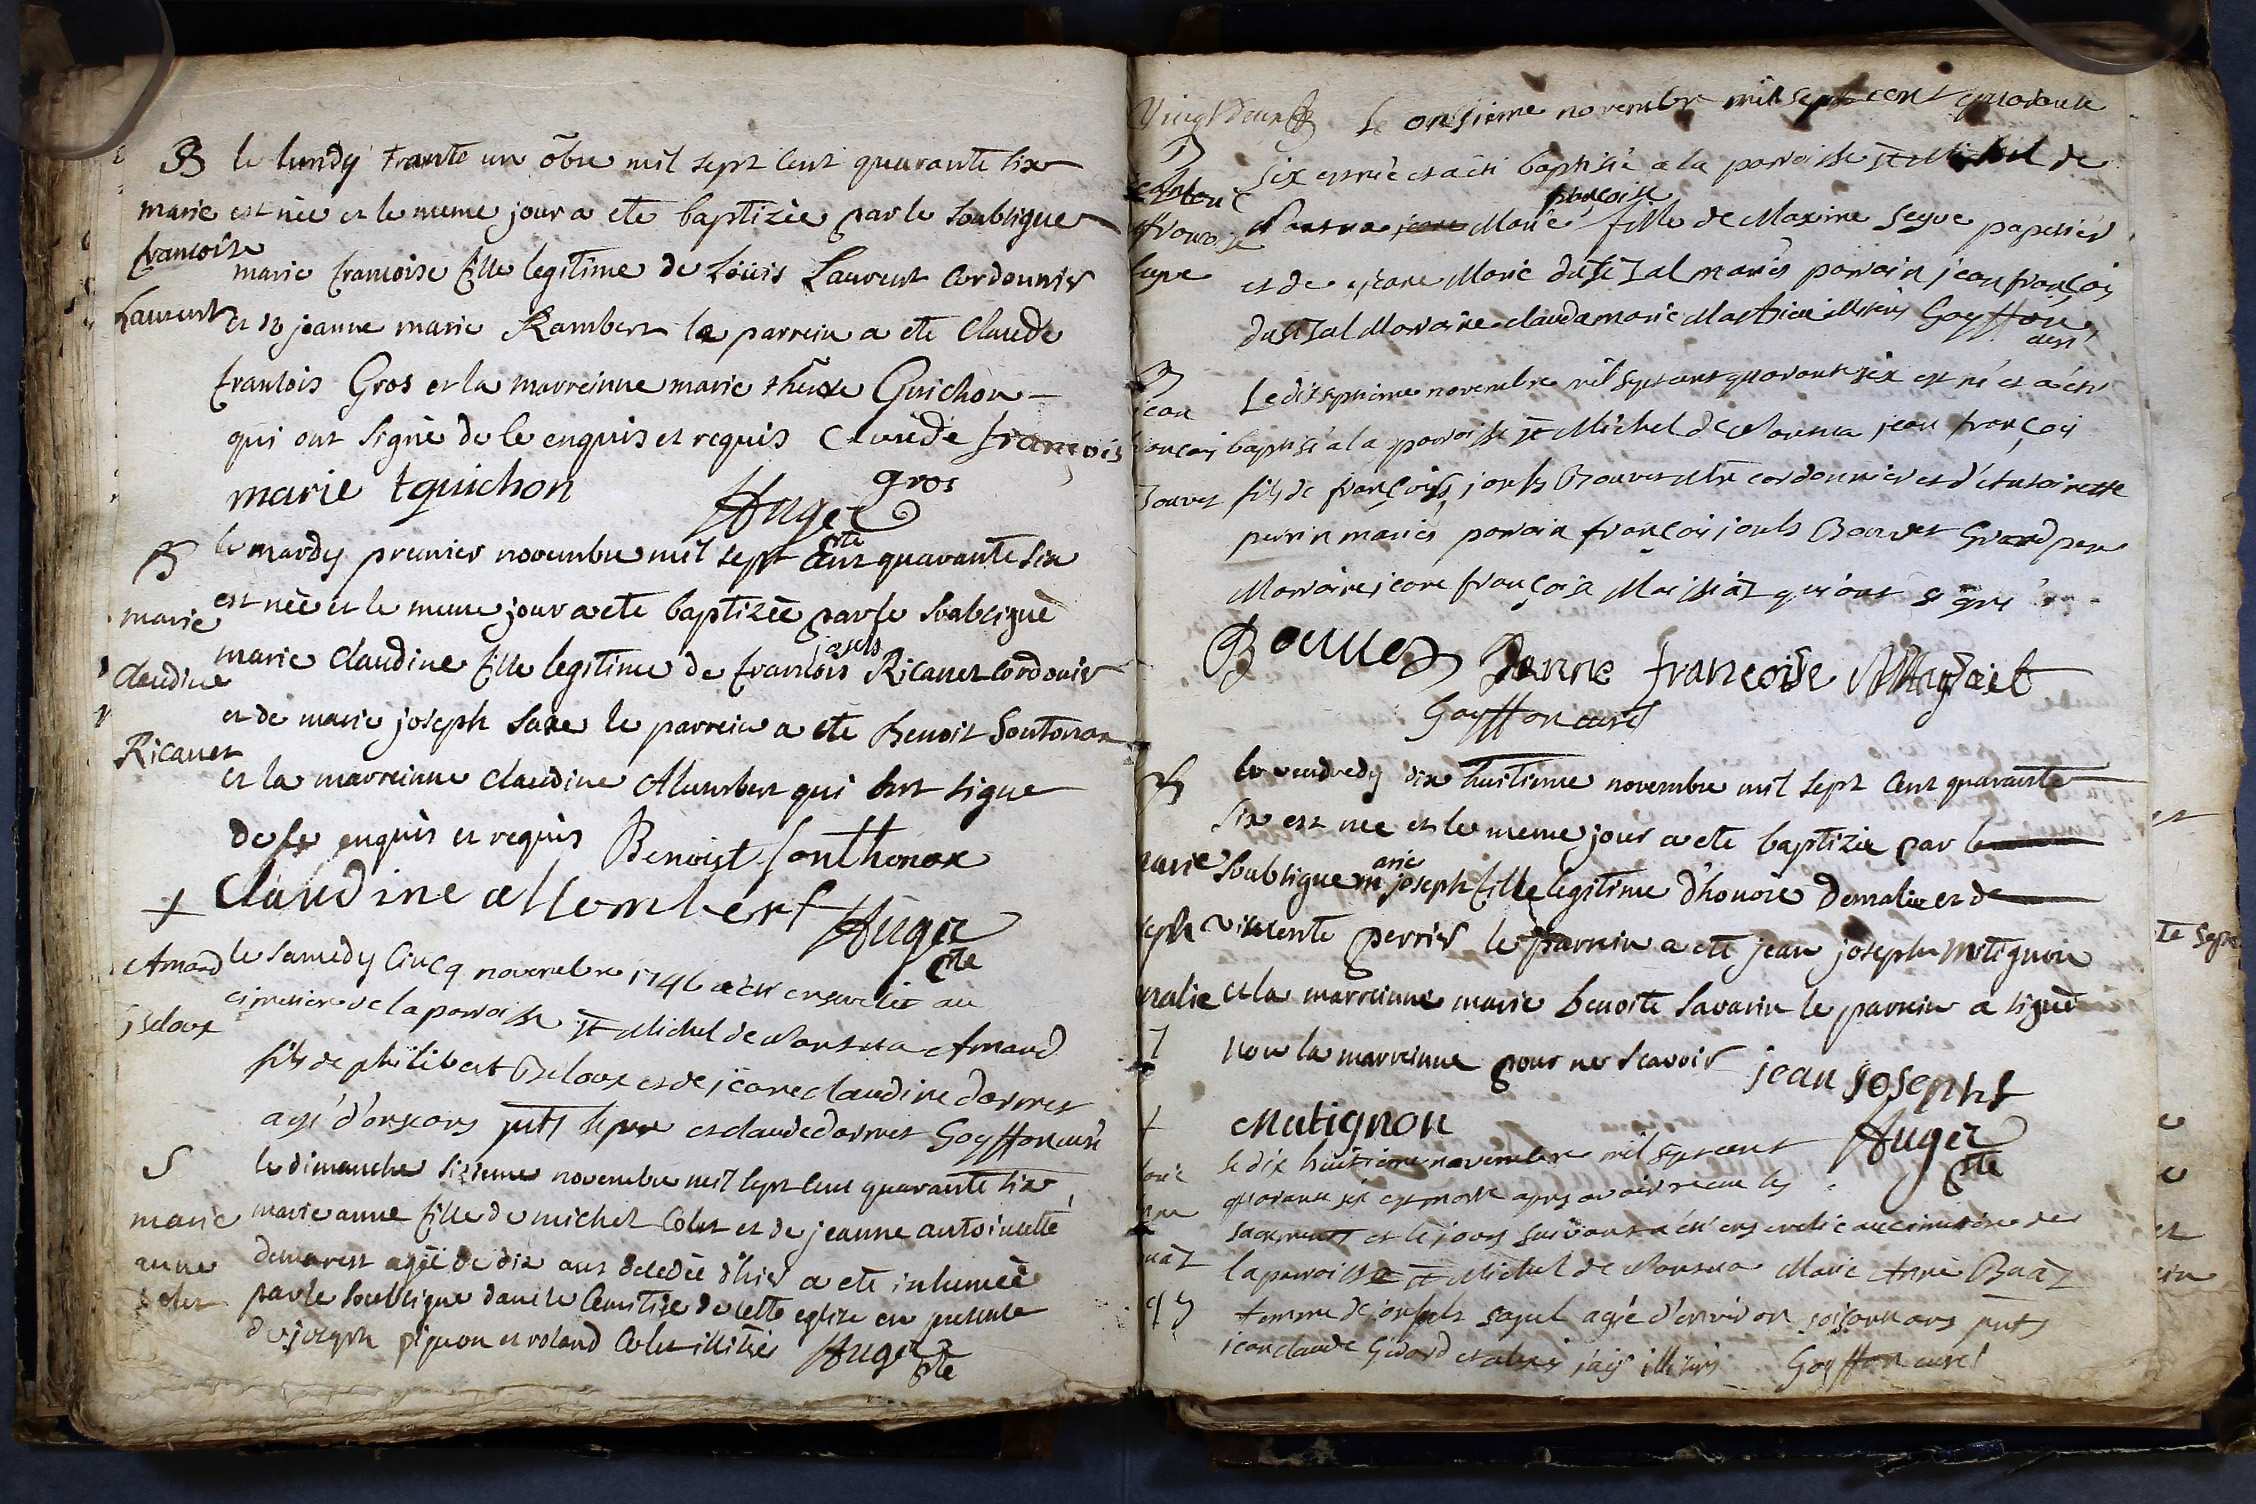 B le lundy trante un obre mil sept cent quarante six
marie est née et le meme jour a ete baptizée par le soubsigne
francoise
marie francoise fille legitime de Loüis Laurent Cordonnier
Laurent et de jeanne marie Rambert le parrein a ete Claude
francois Gros et la marreinne marie Guichon
qui ont signé de ce enquis et requis Claude francois
gros
marie t guichon
Huger
pte
B le mardy premier novembre mil sept cent quarante six
marie est née et le meme jour a ete baptizée par le soubsigné
josph
Claudine marie Claudine fille legitime de francois Ricanet cordonier
et de marie joseph saxe le parrein a ete Benoit Sontonax
Ricanet
et la marreinne Claudine Alumbert qui ont signe
de ce enquis et requis Benoist Sonthonax
+ Claudine allombert Huger
pte
Amand le samedy Cincq novembre 1746 a été enseveli au
cimetiere de la paroisse St Michel de Nantua Amand
fils de philibert Deloux et de jeane claudine dornet
agé d'onze ans puts le pere et claude dornet Goyffon curé
S le dimanche sixieme novembre mil sept cent quarante six
marie marie anne fille de michel Colet et de jeanne antoinette
anne agée de dix ans decedée d'hier a ete inhumeé
Colet par le soubsigne dans le Cemitire de cette eglize en presence
de joseph pignon et roland Colet illitres Huger
pte
Vingt deux Le onsieme novembre mil sept cent quarante
six est née et a été baptisée a la paroisse St Michel de
francoise
Nantua jeane Marie fille de Maxime Seyve papetier
et de jeane Marie maries parrain jean françois
Maraine claudamarie illiterés Goyffon
curé
B
jean Le dixseptieme novembre mil sept cent quarante six est né et a été
françois baptisé a la paroisse St Michel de Nantua jean françois
Bouvet fils de françois joseph Bouvet Mtre cordonnier et d'Antoinette
perrin maries parrain françois joseph Bouvet Grand pere
Maraine jeane françoise qui ont signé
Bouvet Janne francoise
Goyffon curé
B le vendredy dix huitieme novembre mil sept cent quarante
six est née et le meme jour a ete baptizée par le
arie
marie soubsigne m joseph fille legitime d'honoré Demalie et de
joseph vincente perrier le parrein a ete jean joseph Metignon
malie et la marreinne marie benoite Savarin le parrein a signé
non la marreinne pour ne scavoir jean Joseph
Matignon
Huger
pte
+ le dix huitieme novembre mil sept cent
quarante six est morte apres avoir recu les
sacrements et le jour suivant a été ensevelie au cimetiere de
la paroisse St Michel de Nantua Marie Anne
femme de joseph agée d'environ ans puts
jean claude Girard et illiterés Goyffon curé